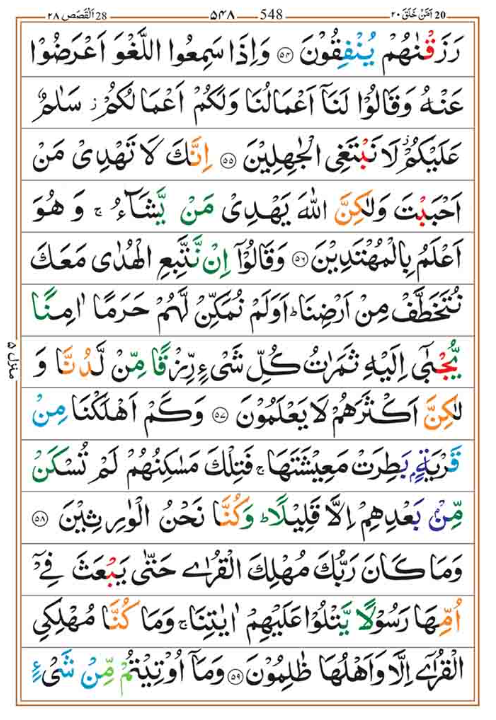 اَلْقَصَص 28 ۲۸ ۵۴۸ 548 اَمَّنْ خَلَقَ 20 ۲۰
رَزَقْنٰهُمْ یُنْفِقُوْنَ ﴿۵۴﴾ وَاِذَا سَمِعُوا اللَّغْوَ اَعْرَضُوْا
عَنْهُ وَقَالُوْا لَنَاۤ اَعْمَالُنَا وَلَكُمْ اَعْمَالُكُمْ ز سَلٰمٌ
عَلَیْكُمْ ز لَا نَبْتَغِی الْجٰهِلِیْنَ ﴿۵۵﴾ اِنَّكَ لَا تَهْدِیْ مَنْ
اَحْبَبْتَ وَلٰكِنَّ اللّٰهَ یَهْدِیْ مَنْ یَّشَآءُ ۚ وَ هُوَ
اَعْلَمُ بِالْمُهْتَدِیْنَ ﴿۵۶﴾ وَقَالُوْۤا اِنْ نَّتَّبِعِ الْهُدٰی مَعَكَ
نُتَخَطَّفْ مِنْ اَرْضِنَا ؕ اَوَلَمْ نُمَكِّنْ لَّهُمْ حَرَمًا اٰمِنًا
یُّجْبٰۤی اِلَیْهِ ثَمَرٰتُ كُلِّ شَیْءٍ رِّزْقًا مِّنْ لَّدُنَّا وَ
لٰكِنَّ اَكْثَرَهُمْ لَا یَعْلَمُوْنَ ﴿۵۷﴾ وَكَمْ اَهْلَكْنَا مِنْ
قَرْیَةٍۭ بَطِرَتْ مَعِیْشَتَهَا ۚ فَتِلْكَ مَسٰكِنُهُمْ لَمْ تُسْكَنْ
مِّنْۢ بَعْدِهِمْ اِلَّا قَلِیْلًا ؕ وَكُنَّا نَحْنُ الْوٰرِثِیْنَ ﴿۵۸﴾
وَمَا كَانَ رَبُّكَ مُهْلِكَ الْقُرٰی حَتّٰی یَبْعَثَ فِیْۤ
اُمِّهَا رَسُوْلًا یَّتْلُوْا عَلَیْهِمْ اٰیٰتِنَا ۚ وَمَا كُنَّا مُهْلِكِی
الْقُرٰۤی اِلَّا وَاَهْلُهَا ظٰلِمُوْنَ ﴿۵۹﴾ وَمَاۤ اُوْتِیْتُمْ مِّنْ شَیْءٍ
منزل ۵